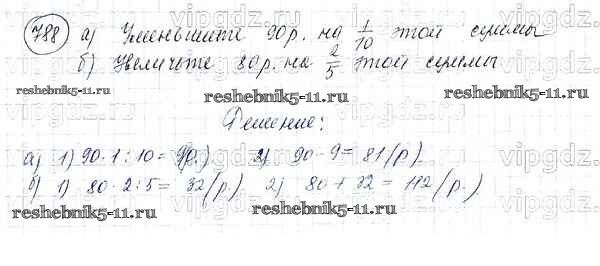 788 а) Уменьшите 90р. на 1/10 этой суммы
б) Увеличьте 80р. на 2/5 этой суммы
reshebnik5-11.ru reshebnik5-11.ru
Решение:
а) 1) 90·1:10=9(р.) 2) 90-9=81(р.)
б) 1) 80·2:5=32(р.) 2) 80+32=112(р.)
reshebnik5-11.ru reshebnik5-11.ru
vipgdz.ru